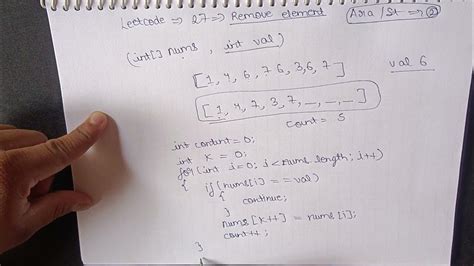 Leetcode => 27 => Remove element (Ara /St => ②)
(int[] nums , int val)
[1, 4, 6, 7 6, 3, 6, 7] val 6
[1, 4, 7, 3, 7, _, _, _]
count = 5
int contnt = 0;
int k = 0;
for (int i=0; i<nums.length; i++)
{ if (nums[i] == val)
{ continue;
}
nums[k++] = nums[i];
count++;
}